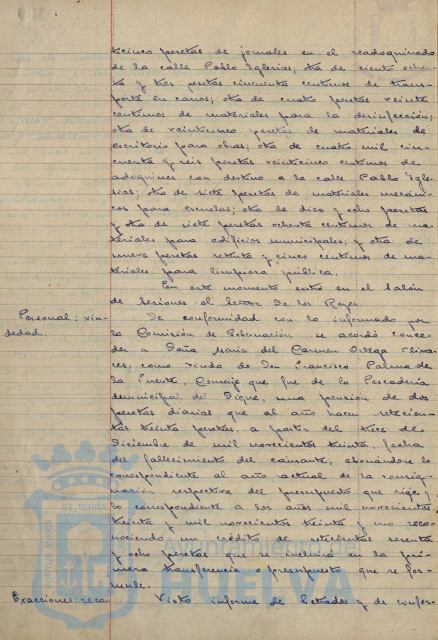 ticinco pesetas de jornales en el readoquinado
de la calle Pablo Iglesias; otra de ciento ochen-
ta y tres pesetas cincuenta centimos de trans-
porte en carros; otra de cuatro pesetas veinte
centimos de materiales para la desinfección;
otra de veinticinco pesetas de materiales de
escritorio para obras; otra de cuatro mil cin-
cuenta y seis pesetas veinticinco centimos de
adoquines con destino a la calle Pablo Igle-
sias; otra de siete pesetas de materiales mecáni-
cos para escuelas; otra de diez y ocho pesetas
y otra de siete pesetas ochenta centimos de ma-
teriales para edificios municipales; y otra de
nueve pesetas setenta y cinco centimos de ma-
teriales para limpieza pública.
En este momento entra en el Salón
de sesiones el señor de los Reyes.
Personal: viu-
dedad.
De conformidad con lo informado por
la Comisión de Gobernación se acordó conce-
der a Doña Maria del Carmen Ortega Oliva-
res, como viuda de Don Francisco Palma de
la Fuente, Conserje que fue de la Pescadería
municipal del Tigre, una pensión de dos
pesetas diarias que al año hacen setecien-
tas treinta pesetas, a partir del trece de
Diciembre de mil novecientos treinta, fecha
del fallecimiento del causante, abonándose lo
correspondiente al año actual de la consig-
nación respectiva del presupuesto que rige y
lo correspondiente a los años mil novecientos
treinta y mil novecientos treinta y uno reco-
nociendo un crédito de setecientas sesenta
y ocho pesetas que se incluirá en la pri-
mera transferencia o presupuesto que se for-
mule.
Exacciones: recau
Visto informe de Letrados y de confor-
AYUNTAMIENTO DE
HUELVA